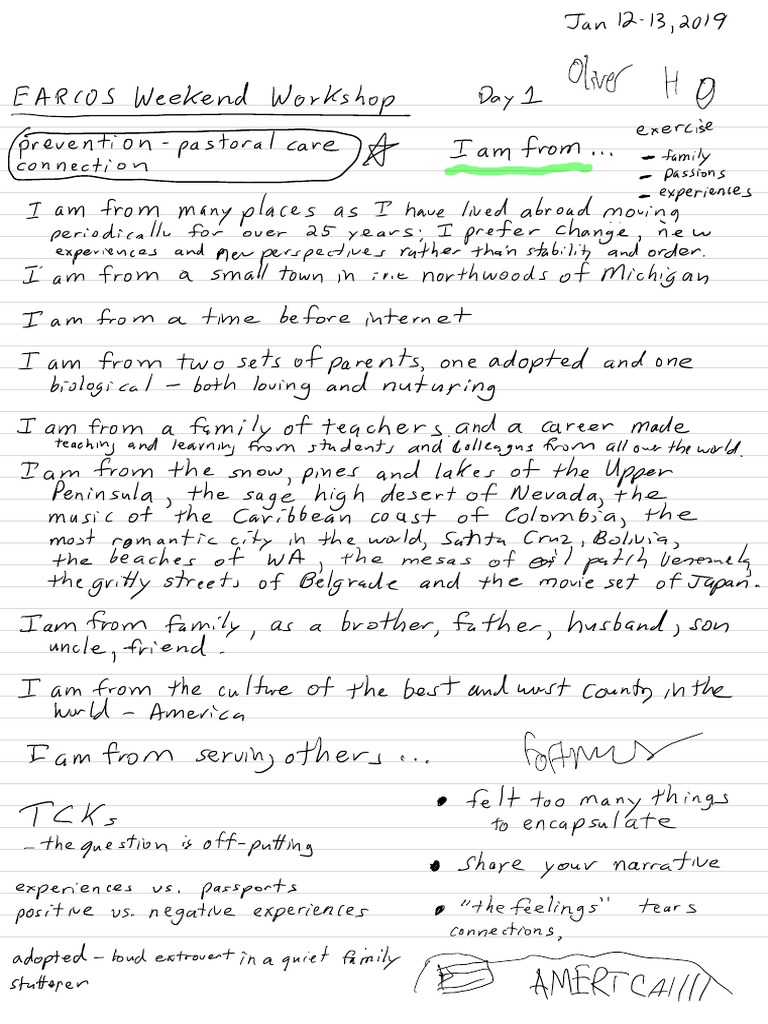 Jan 12-13, 2019
EARCOS Weekend Workshop
Day 1
Oliver H O
prevention - pastoral care
connection
I am from...
exercise
- family
- passions
- experiences
I am from many places as I have lived abroad moving
periodically for over 25 years; I prefer change, new
experiences and new perspectives rather than stability and order.
I am from a small town in the northwoods of Michigan
I am from a time before internet
I am from two sets of parents, one adopted and one
biological - both loving and nuturing
I am from a family of teachers and a career made
teaching and learning from students and colleagus from all over the world.
I am from the snow, pines and lakes of the Upper
Peninsula, the sage high desert of Nevada, the
music of the Caribbean coast of Colombia, the
most romantic city in the world, Santa Cruz, Bolivia,
the beaches of WA, the mesas of oil patch
the gritty streets of Belgrade and the movie set of Japan.
I am from family, as a brother, father, husband, son
uncle, friend.
I am from the culture of the best and worst County in the
world - America
I am from serving others...
TCKs
- the question is off-putting
experiences vs. passports
positive vs. negative experiences
adopted - loud extrovert in a quiet family
stutterer
• felt too many things
to encapsulate
• Share your narrative
• "the feelings" tears
connections,
AMERICA!!!!